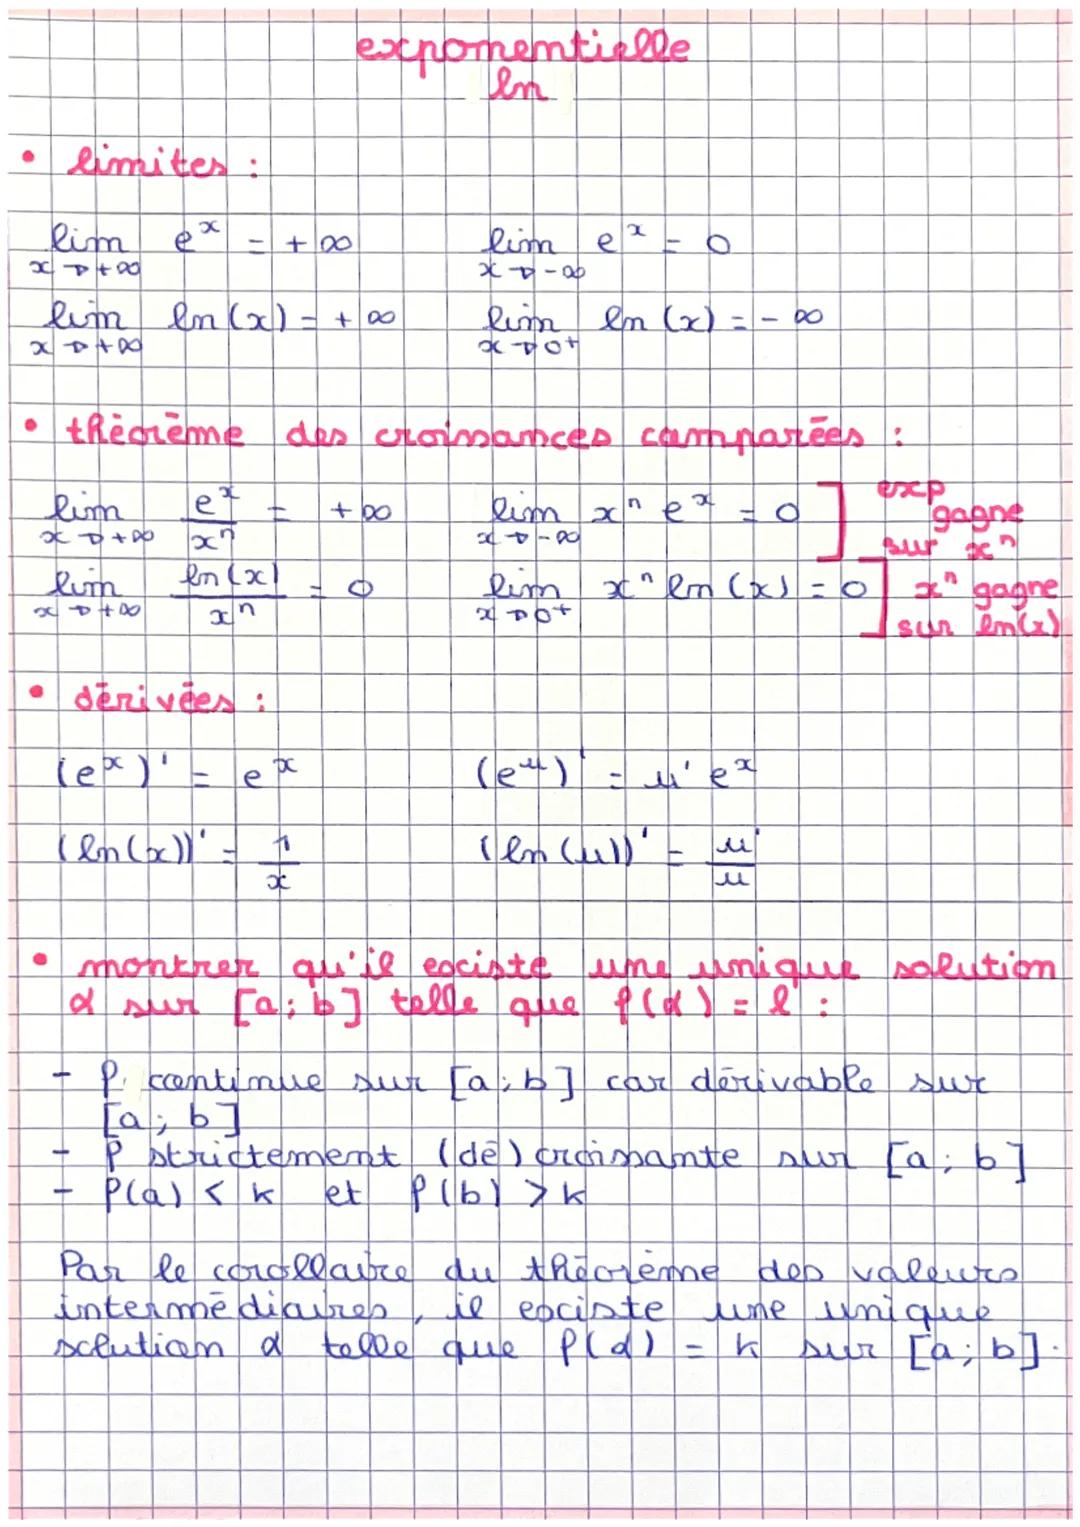 exponentielle
ln
• limites :
lim e^x = +∞ lim e^x = 0
x→+∞ x→-∞
lim ln(x) = +∞ lim ln(x) = -∞
x→+∞ x→0+
• théorème des croissances comparées :
lim e^x/x^n = +∞ lim x^n e^x = 0 ] exp gagne sur x^n
x→+∞ x→-∞
lim ln(x)/x^n = 0 lim x^n ln(x) = 0 ] x^n gagne sur ln(x)
x→+∞ x→0+
• dérivées :
(e^x)' = e^x (e^u)' = u' e^x
(ln(x))' = 1/x (ln(u))' = u'/u
• montrer qu'il existe une unique solution
α sur [a; b] telle que f(α) = l :
- f continue sur [a; b] car dérivable sur
[a; b]
- f strictement (dé)croissante sur [a; b]
- f(a) < k et f(b) > k
Par le corollaire du théorème des valeurs
intermédiaires, il existe une unique
solution α telle que f(α) = k sur [a; b].